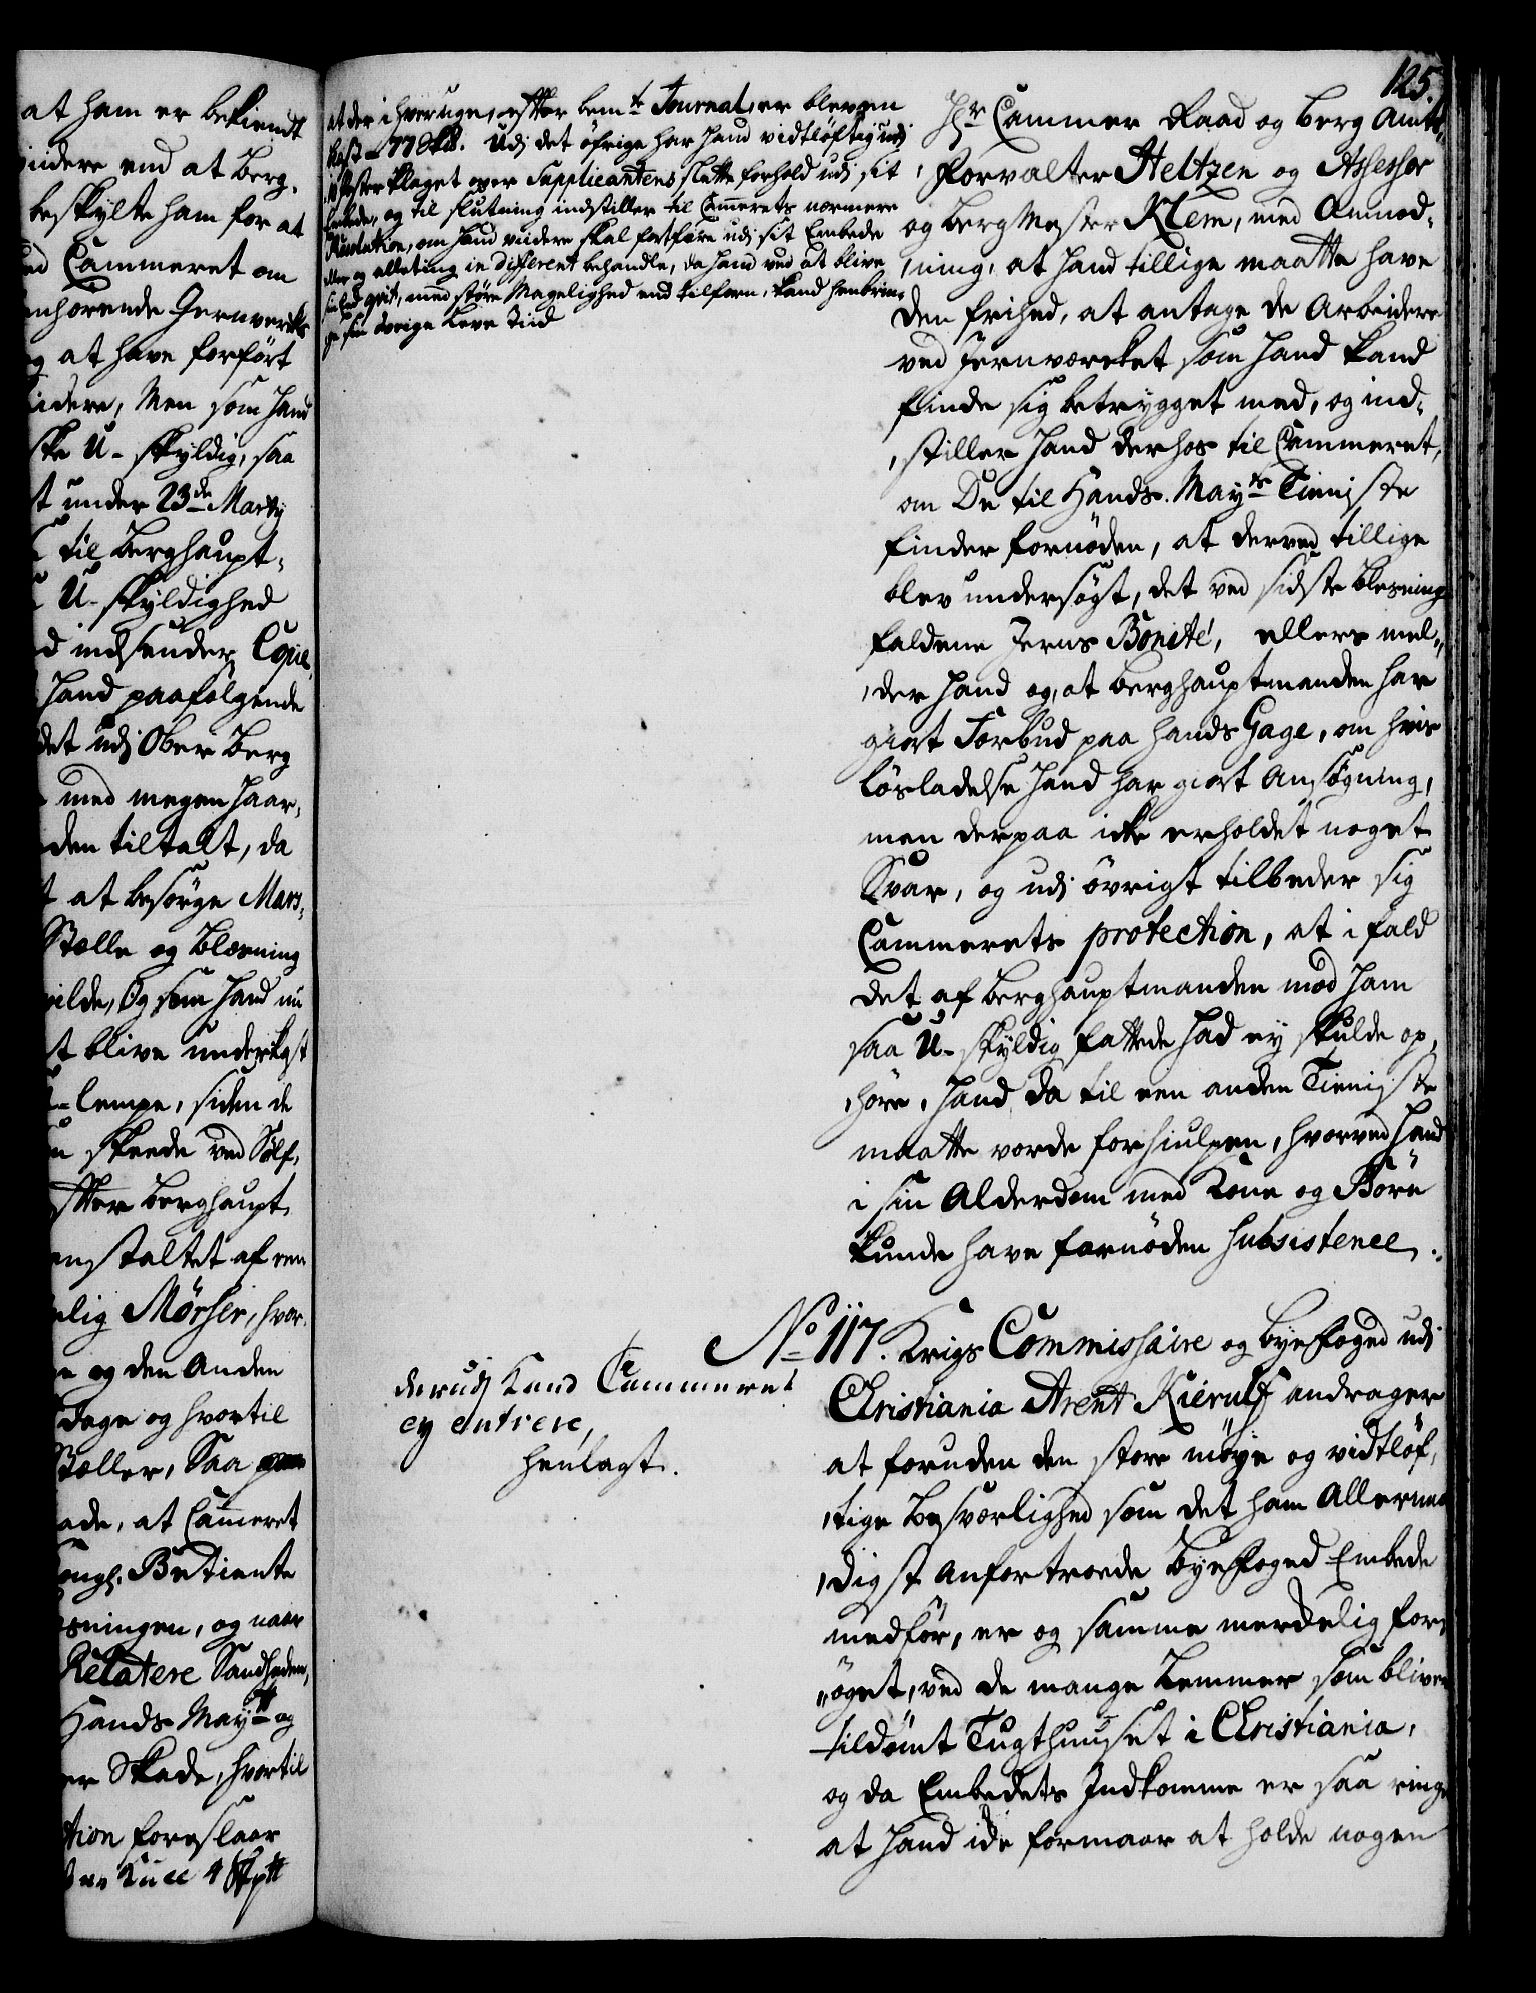 at ham er bekiendt
videre end at Berg-
beskylte ham for at
ved Cammeret om
henhörende Jernverks
og at have forfört
videre, Men som hand
U-skyldig, saa
under 23de Marty
til Berghaupt-
U-skyldighed
indsender Copie,
hand paafölgende
det udj Ober Berg
med megen haar-
den tiltalt, da
at besörge Mars-
Stelle og Blæsning
vilde, Og som hand nu
blive undersögt
U-lempe, siden de
skeede ved Sölf-
effter Berghaupt-
anstaltet af een
Mörser, hvor-
og den Anden
dage og hvortil
Stæller, Saa
at Cammeret
Kongl. Betiente
Blæsningen, og naar
Relatere Sandheden,
Hands Maytt og
Skade, hvortil
foreslaar
125.
at der i hver uge, effter bemte Journal, er bleven
77 Udj det öfrige har hand vidtlöftig udj
klaget over Supplicantens slette forhold udj sit
Embede, og til slutning indstiller til Cammerets nærmere
Resolution, om hand videre skal fortfare udj sit Embede
eller og alleting indifferent behandle, da hand ved at blive
qvit, med större Magelighed end tilforn, kand henbrin-
ge sin övrige Leve Tiid
Hr Cammer Raad og Berg Ambts-
forvalter Heltzen og Assessor
og Berg Mester Klem, med Anmod-
ning, at hand tillige maatte have
den frihed, at antage de Arbeidere
ved Jernværcket som hand kand
finde sig betrygget med, og ind-
stiller hand derhos til Cammeret,
om De til Hands Mayts Tieniste
finder fornöden, at derved tillige
blev undersögt, det ved sidste Blæsning
faldene Jerns Bonité, ellers mel-
der hand og, at Berghauptmanden har
giort Forbud paa hands Gage, om hvis
lösladelse hand har giort Ansögning,
men derpaa icke erholdet noget
Svar, og udj övrigt tilbeder sig
Cammerets protection, at i fald
det af Berghauptmanden mod ham
saa U-skyldig fattede had ey skulde op-
höre, hand da til een anden Tieniste
maatte vorde forhiulpen, hvorved hand
i sin Alderdom med Kone og Börn
kunde have fornöden Subsistence.
derudj kand Cammeret
ey entrere,
henlagt.
No 117. Krigs Commissaire og Byefoged udj
Christiania Arent Kierulf andrager
at foruden den store möye og vidtlöf-
tige Besværlighed som det ham Allernaa-
digst Anfortroede Byefoged Embede
medför, er og samme merckelig for-
öget, ved de mange Lemmer som bliver
tildömt Tugthuuset i Christiania,
og da Embedets Indkomme er saa ringe
at hand icke formaar at holde nogen